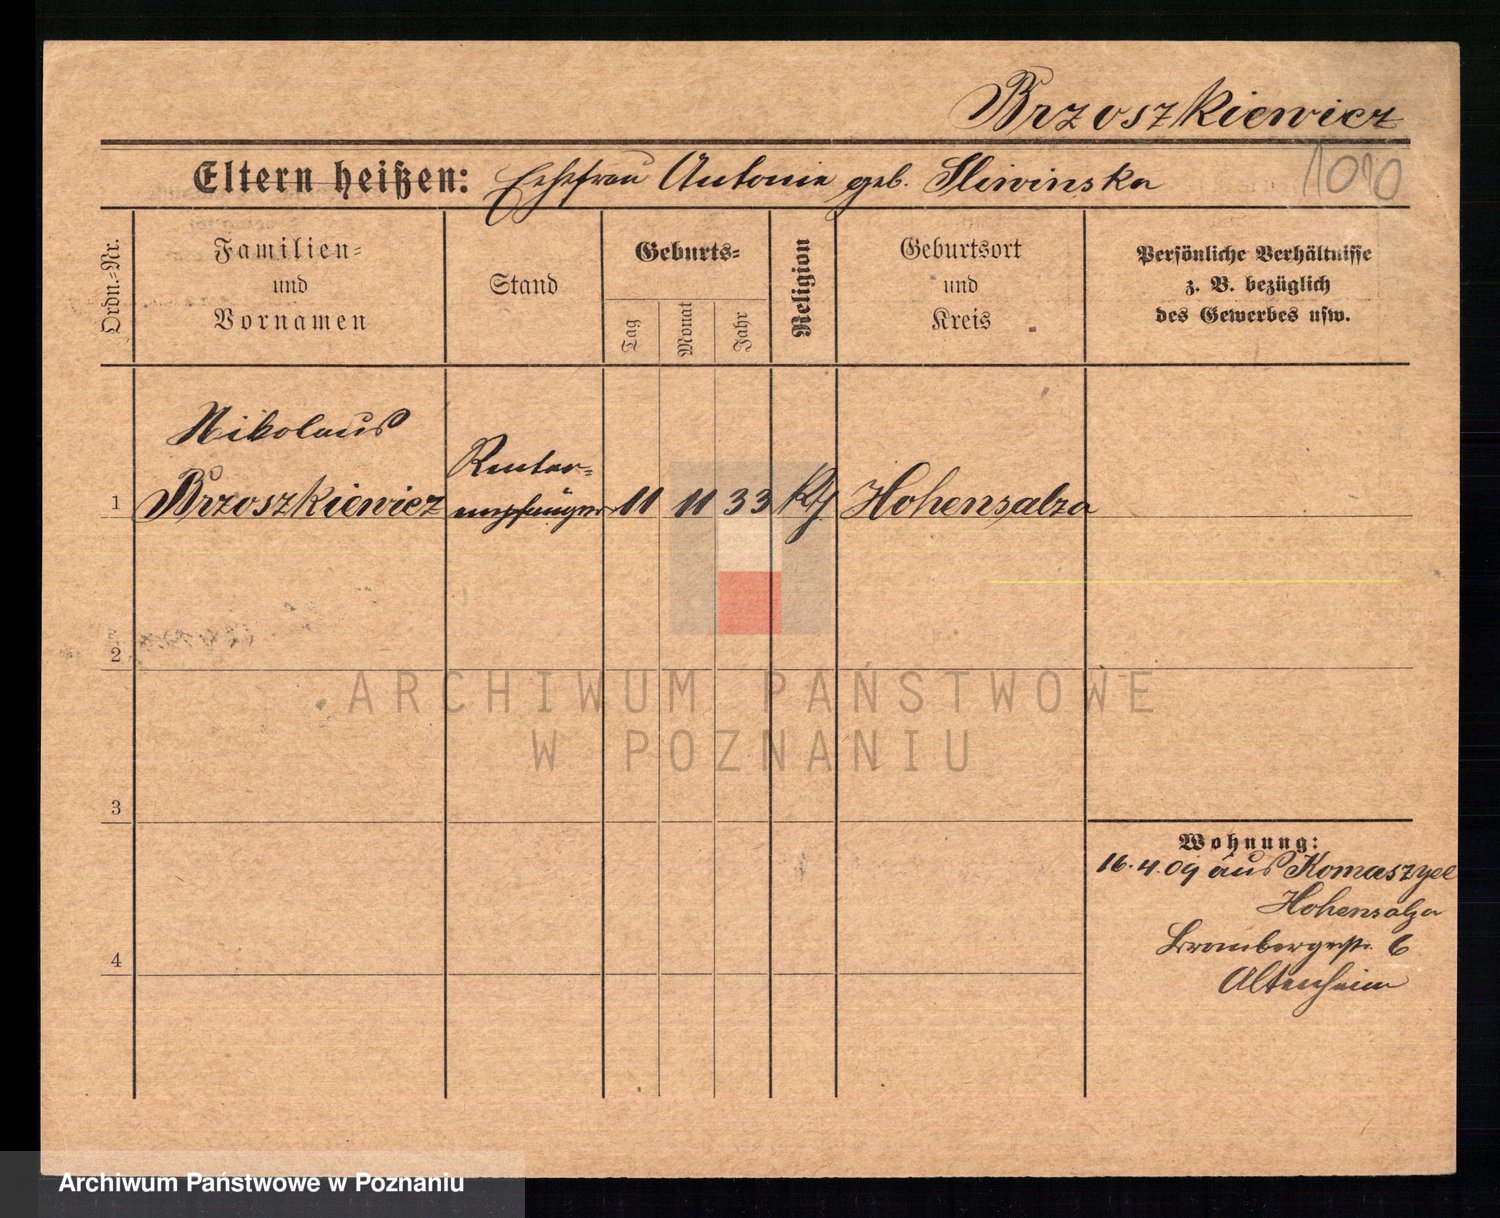 Brzoszkiewicz
Eltern heißen: Ehefrau Antonie geb. Sliwinska
1010
Ordn.-Nr.
Familien-
und
Vornamen
Stand
Geburts-
Tag
Monat
Jahr
Religion
Geburtsort
und
Kreis
Persönliche Verhältnisse
z. B. bezüglich
des Gewerbes usw.
Nikolaus
1 Brzoszkiewicz
Renten-
empfänger
11 11 33 kth Hohensalza
2
3
4
Wohnung:
16.4.09 aus
Hohensalza
Brombergerstr. 6
Altenheim
ARCHIWUM PAŃSTWOWE
W POZNANIU
Archiwum Państwowe w Poznaniu